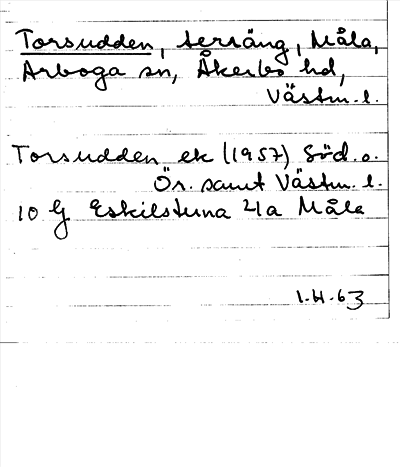 Torsudden, terräng, Måla,
Arboga sn, Åkerbo hd,
Västm. l.
Torsudden ek (1957) Söd. o.
Ör. samt Västm. l.
10 G Eskilstuna 4a Måla
1.H.63